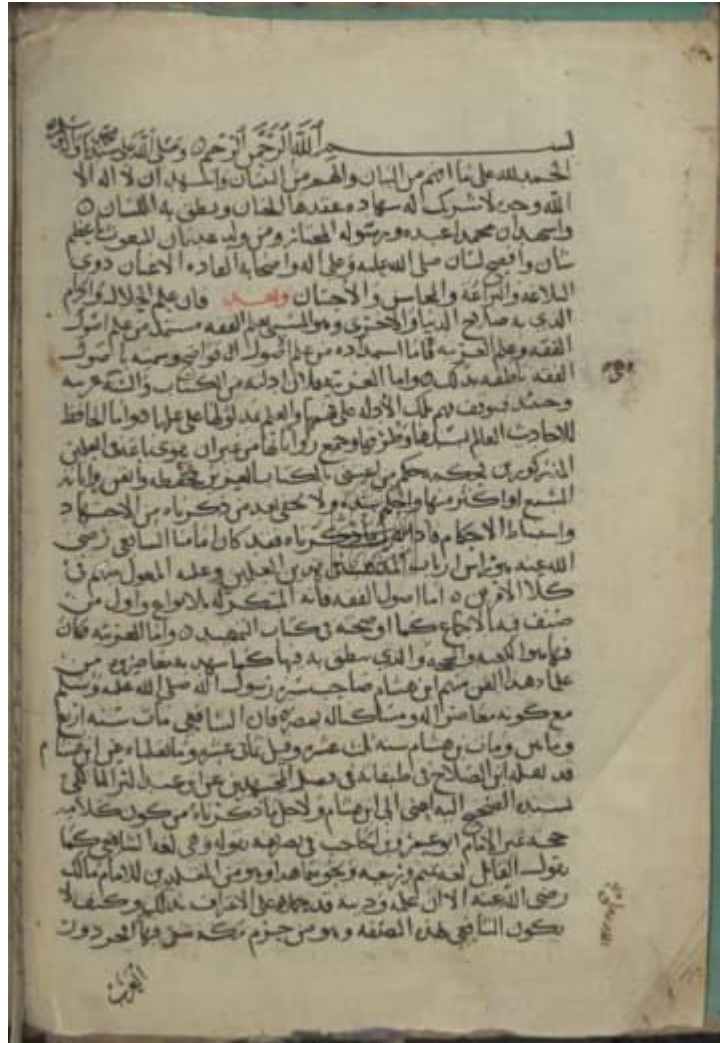 بسم الله الرحمن الرحيم وصلى الله على سيدنا محمد وآله
الحمد لله على ما انعم من البيان والهم من التبيان واشهد ان لا اله الا
الله وحده لا شريك له شهادة عقدها الجنان ونطق بها اللسان
واشهد ان محمدا عبده ورسوله المختار من ولد عدنان المبعوث باعظم
شان وافصح لسان صلى الله عليه وعلى اله واصحابه القادة الاعيان ذوي
البلاغة والبراعة والمحاسن والاحسان وبعد فان علم الحلال والحرام
الذي به صلاح الدنيا والاخرى وهو المسمى بعلم الفقه مستمد من علم اصول
الفقه وعلم العربية فاما استمداده من علم اصول الفقه فواضح وتسميته باصول
الفقه ناطقة بذلك واما العربية فلان ادلته من الكتاب والسنة عربية
وحينئذ فيتوقف فهم تلك الادلة على فهمها والعلم بمدلولها على علمها واما الحافظ
للاحاديث العالم بسندها وطرقها وجميع رواياتها من غير ان يقوى باعه في العلمين
المذكورين فحكمه حكم من اعتنى بالكتاب العزيز فحفظه واتقن رواياته
السبع او اكثر منها واحكم سنده ولا يخفى بعد من ذكرناه من الاجتهاد
واستنباط الاحكام فاذا تقرر ما ذكرناه فقد كان امامنا الشافعي رضي
الله عنه هو راس ارباب المذاهب في هذين العلمين وعليه المعول منهم في
كلا الامرين اما اصول الفقه فانه المبتكر له بلا نزاع واول من
صنف فيه بالاجماع كما اوضحته في كتاب التمهيد واما العربية فكان
فيها هو الكعبة والحجة والذي ينطق به فيها كما شهد به معاصروه من
علماء هذا الفن منهم ابن هشام صاحب سيرة رسول الله صلى الله عليه وسلم
مع كونه معاصرا له ومشاكلا له بمصره فان الشافعي مات سنة اربع
ومائتين ومات ابن هشام سنة ثلاث عشرة وقيل ثماني عشرة وما نقلناه عن ابن هشام
قد نقله ابن الصلاح في طبقاته في فصل المحمدين عن ابن عبد البر المالكي
بسنده الصحيح اليه اعني الى ابن هشام ولاجل ما ذكرناه من كون كلامه
حجة عبر الامام ابو عمرو بن الحاجب في تصريفه بقوله وهي لغة الشافعي كما
يقول القائل لغة تميم وربيعة ونحوهما هذا وهو من المقلدين للامام مالك
رضي الله عنه الا ان علمه ودينه قد حملاه على الاعتراف بذلك وكيف لا
يكون الشافعي بهذه الصفة وهو من جرثومة مكة
العرب